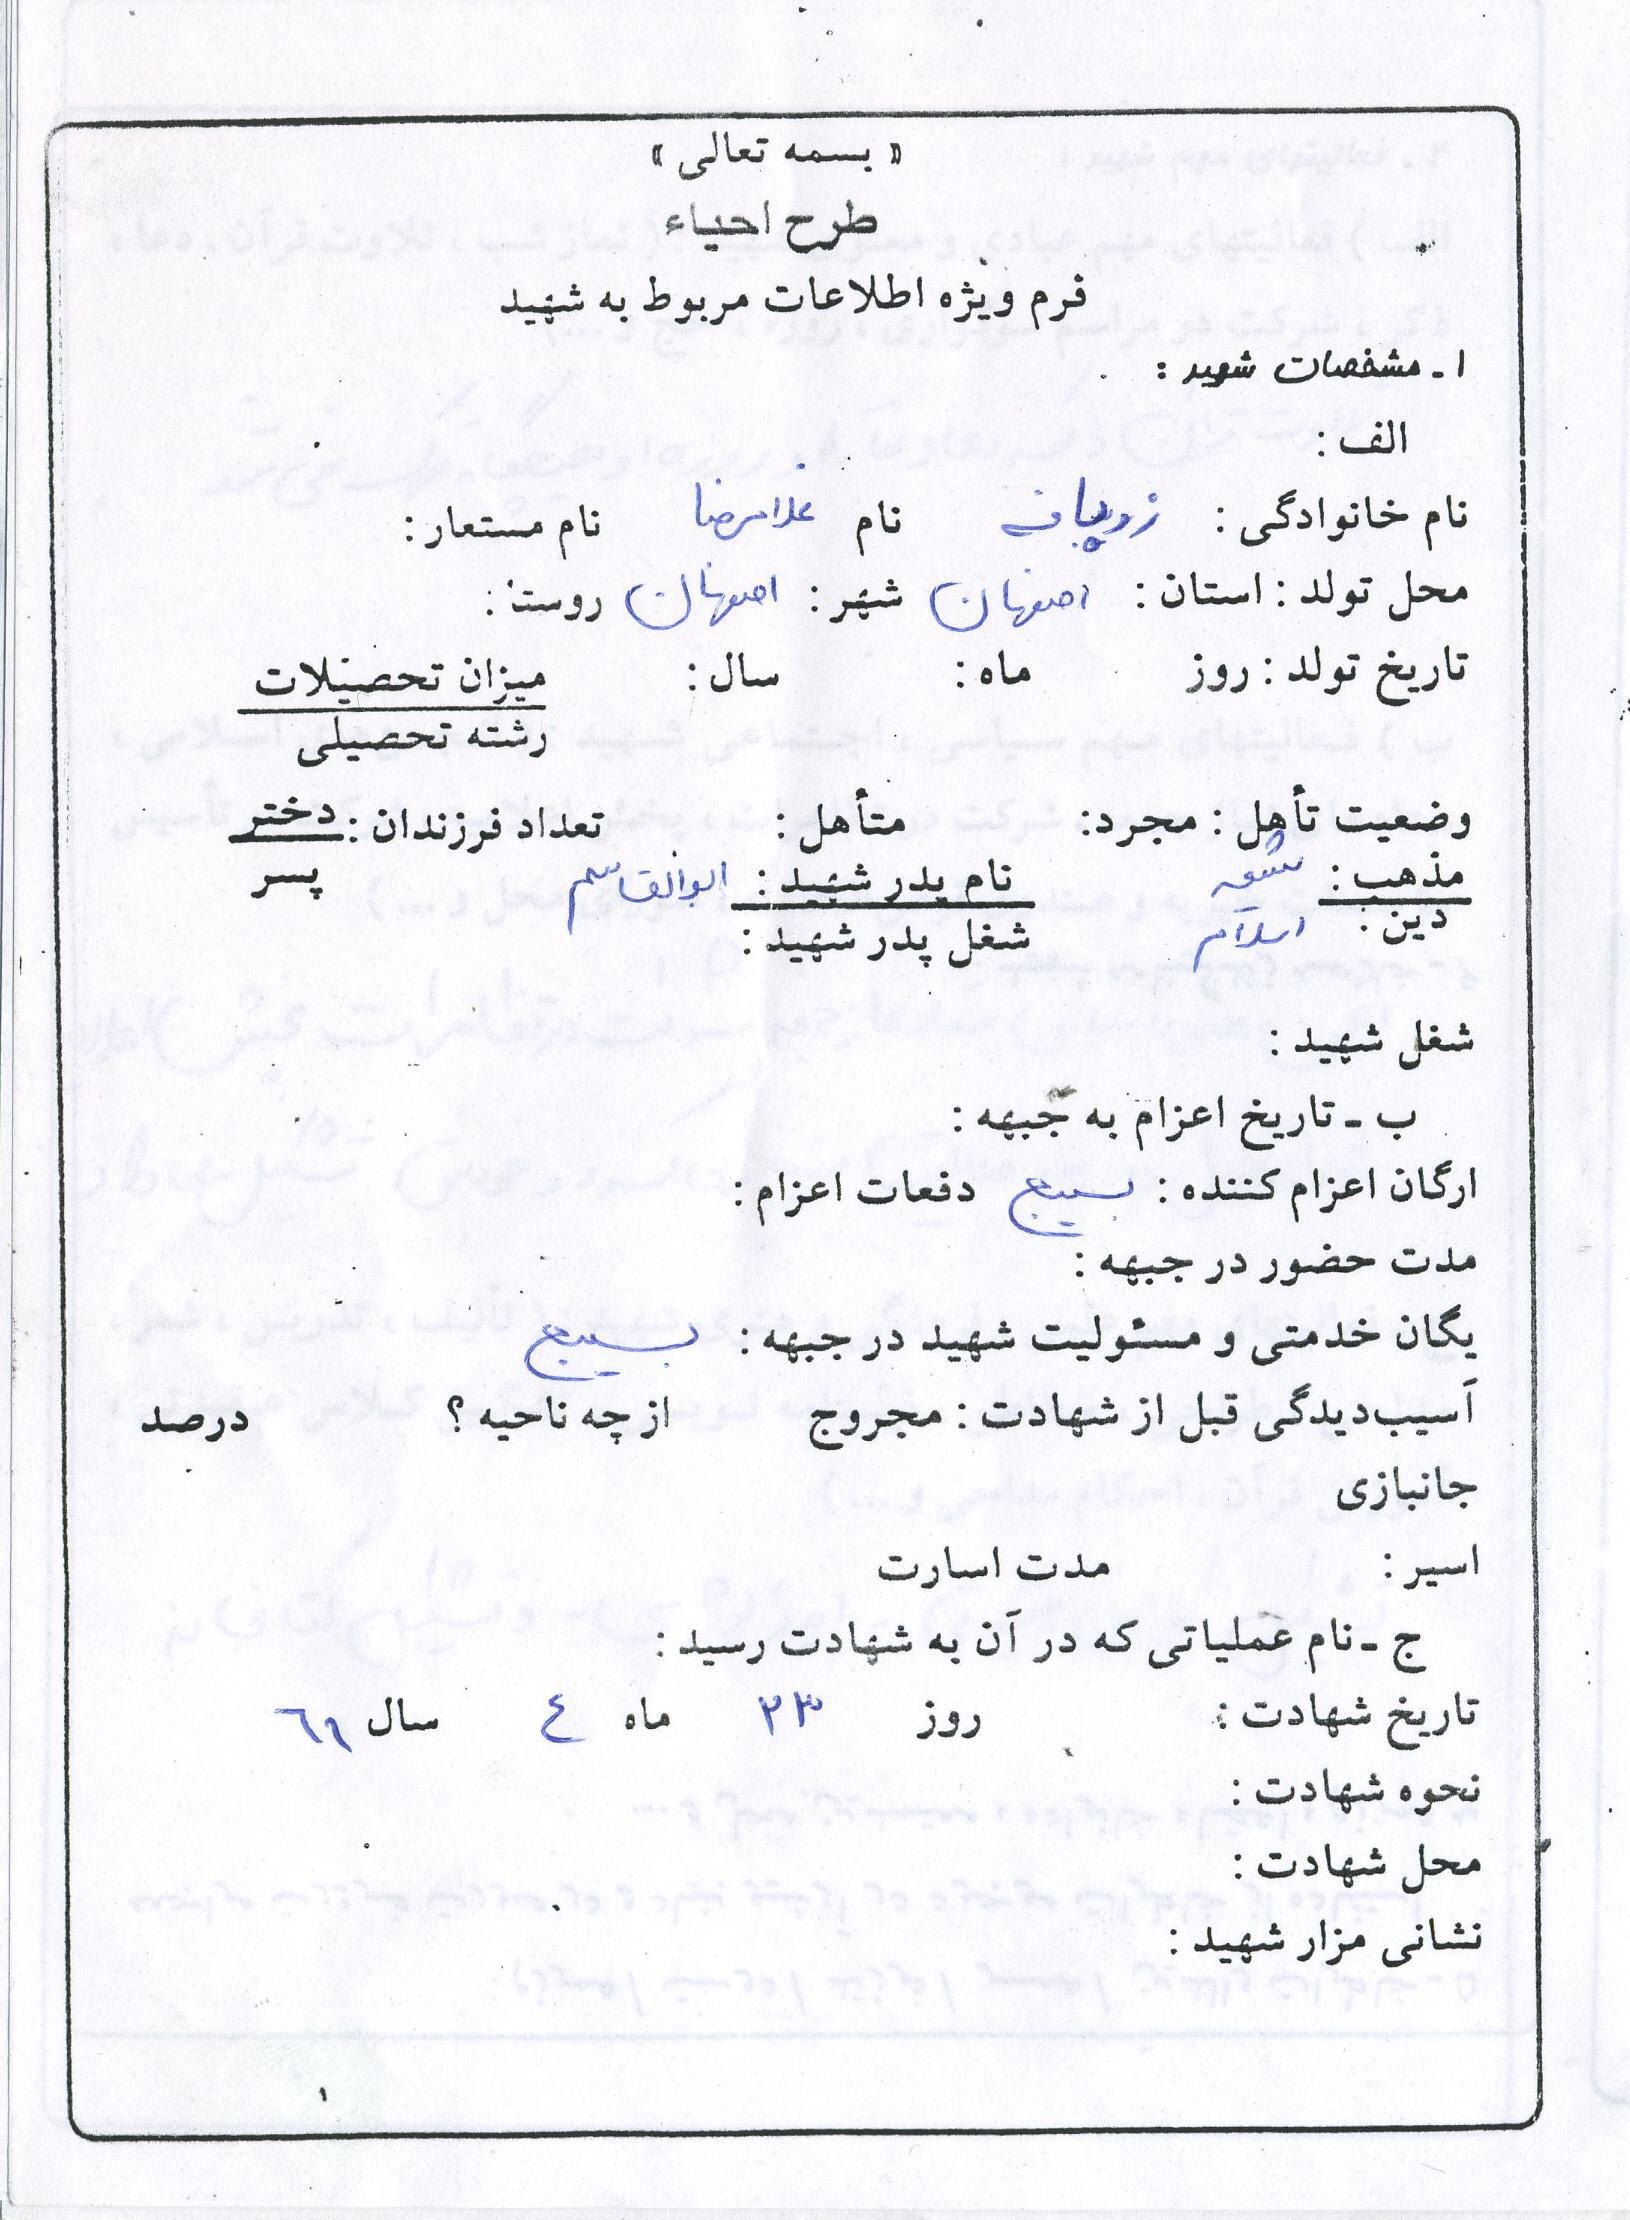 « بسمه تعالی »
طرح احیاء
فرم ویژه اطلاعات مربوط به شهید
۱ - مشخصات شهید :
الف :
نام خانوادگی : نام غلامرضا نام مستعار :
محل تولد : استان : اصفهان شهر : اصفهان روستا :
تاریخ تولد : روز ماه : سال : میزان تحصیلات
رشته تحصیلی
وضعیت تأهل : مجرد : متأهل : تعداد فرزندان : دختر
مذهب : شیعه نام پدر شهید : ابوالقاسم پسر
دین : اسلام شغل پدر شهید :
شغل شهید :
ب - تاریخ اعزام به جبهه :
ارگان اعزام کننده : بسیج دفعات اعزام :
مدت حضور در جبهه :
یگان خدمتی و مسئولیت شهید در جبهه : بسیج
آسیب‌دیدگی قبل از شهادت : مجروح از چه ناحیه ؟ درصد
جانبازی
اسیر : مدت اسارت
ج - نام عملیاتی که در آن به شهادت رسید :
تاریخ شهادت : روز ۲۳ ماه ٤ سال ٦١
نحوه شهادت :
محل شهادت :
نشانی مزار شهید :
۱